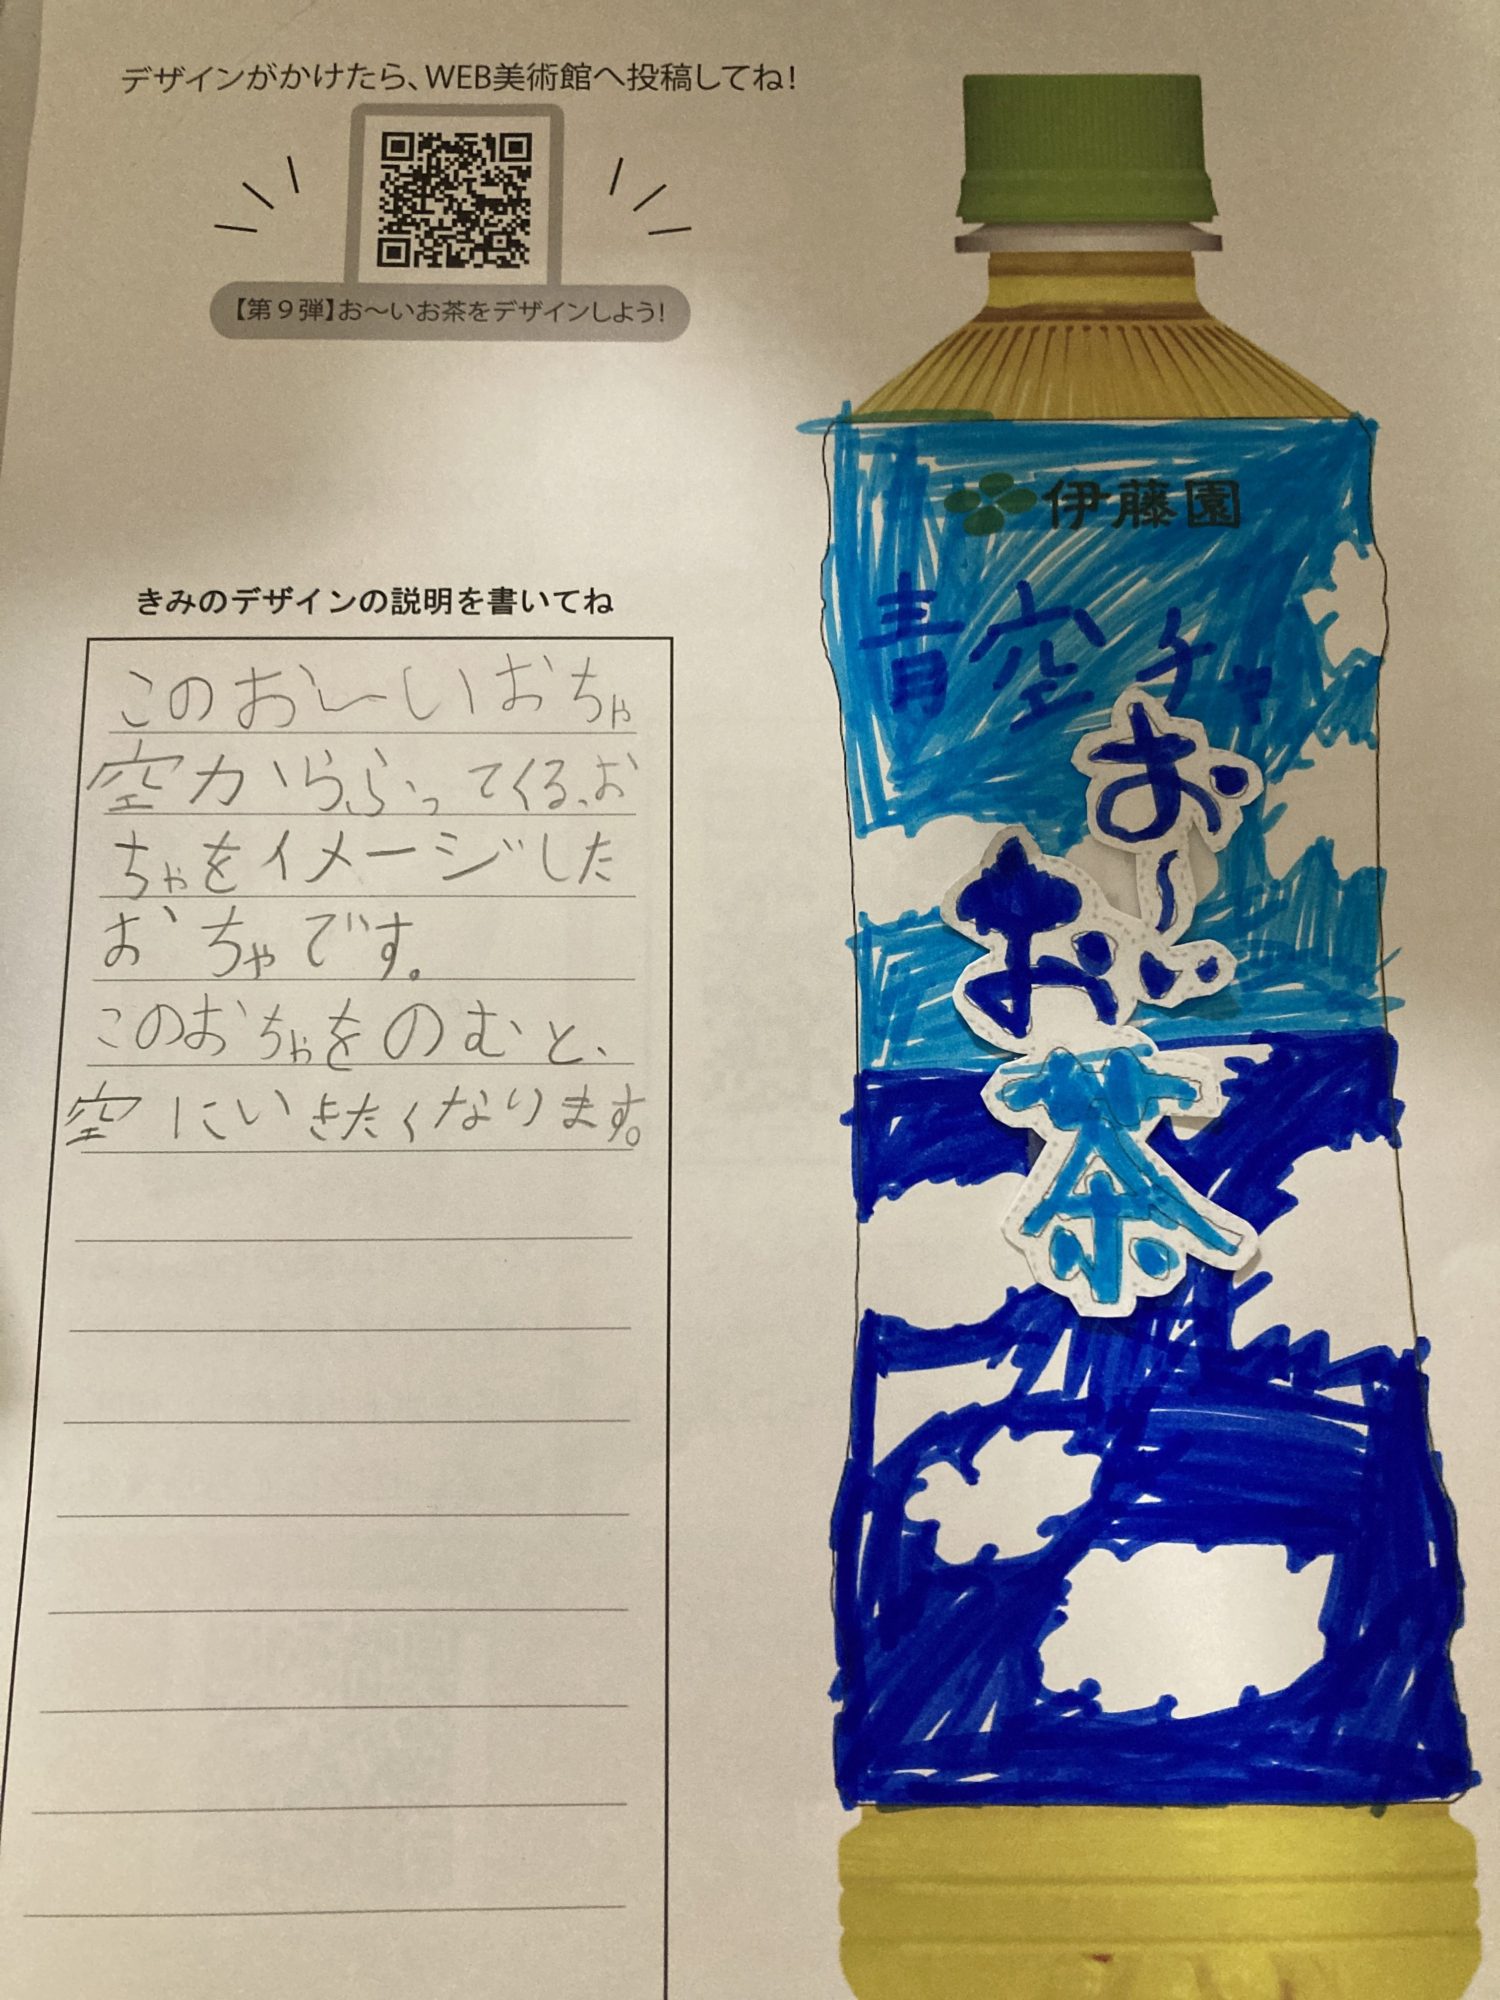 デザインがかけたら、WEB美術館へ投稿してね!
【第9弾】お〜いお茶をデザインしよう!
きみのデザインの説明を書いてね
このお〜いおちゃ
空からふってくる、お
ちゃをイメージした
おちゃです。
このおちゃをのむと、
空にいきたくなります。
伊藤園
青空チャ
お〜い
お茶